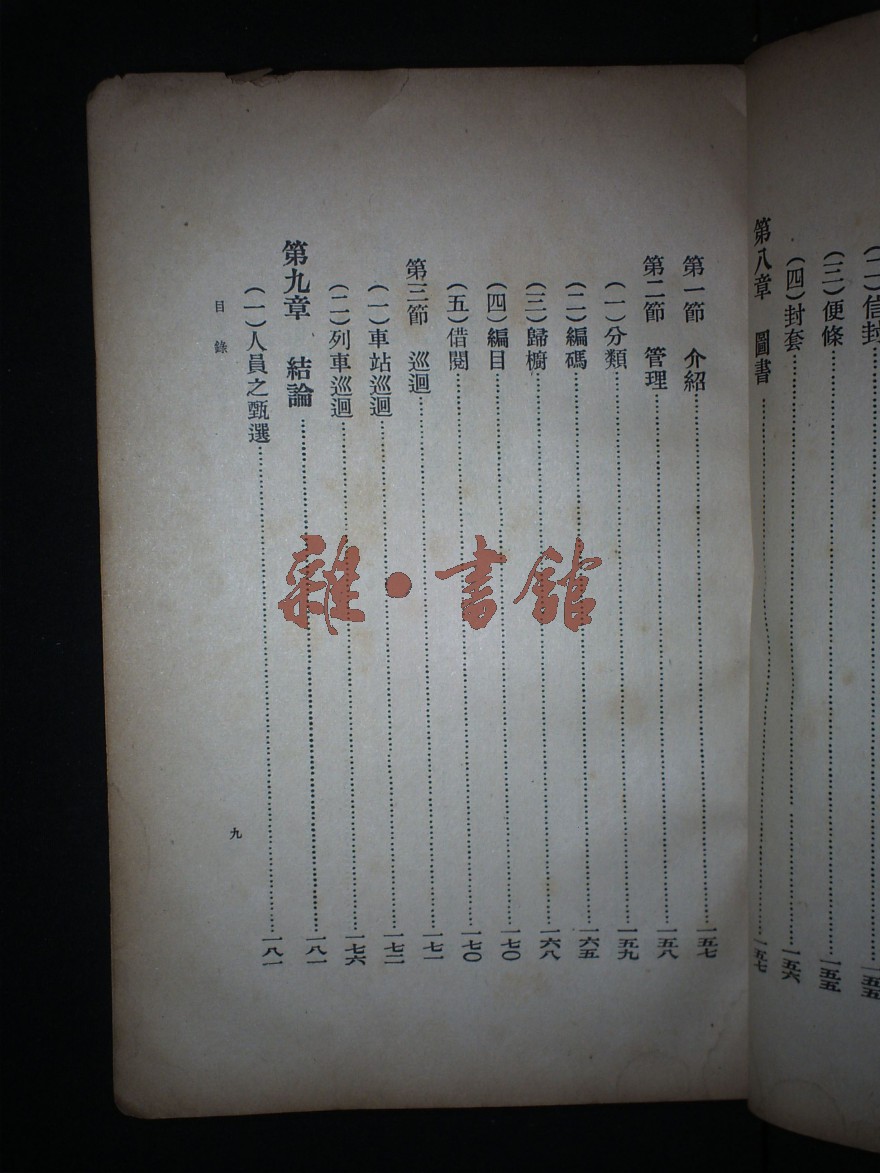 (二)信封……一五五
(三)便條……一五五
(四)封套……一五六
第八章 圖書……一五七
第一節 介紹……一五七
第二節 管理……一五八
(一)分類……一五九
(二)編碼……一六五
(三)歸櫥……一六八
(四)編目……一七〇
(五)借閱……一七〇
第三節 巡迴……一七一
(一)車站巡迴……一七二
(二)列車巡迴……一七六
第九章 結論……一八一
(一)人員之甄選……一八一
目錄
九
雜·書館